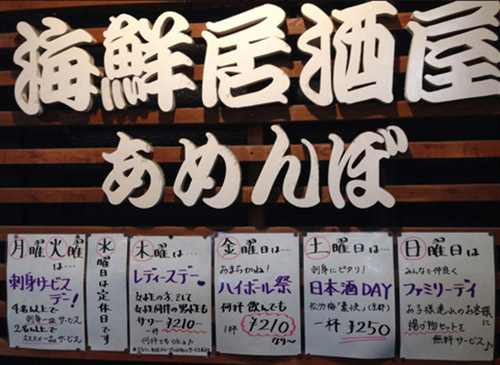 海鮮居酒屋
あめんぼ
月曜火曜
は…
刺身サービス
デー!
4名以上で
刺身一皿サービス
2名以上で
オススメ一品サービス
水曜日は定休日です
木曜は…
レディースデー♥
女性の方、そして
女性同伴の男性も
サワー¥210-
一杯
何杯でもOKよ♪
金曜日は…
おまちかね!
ハイボール祭
何杯飲んでも
1杯 ¥210
土曜日は…
刺身にピタリ!
日本酒DAY
一杯 ¥250
日曜日は
みんなで仲良く
ファミリーデイ
お子様連れのお客様に
揚げ物セットを
無料サービス♪